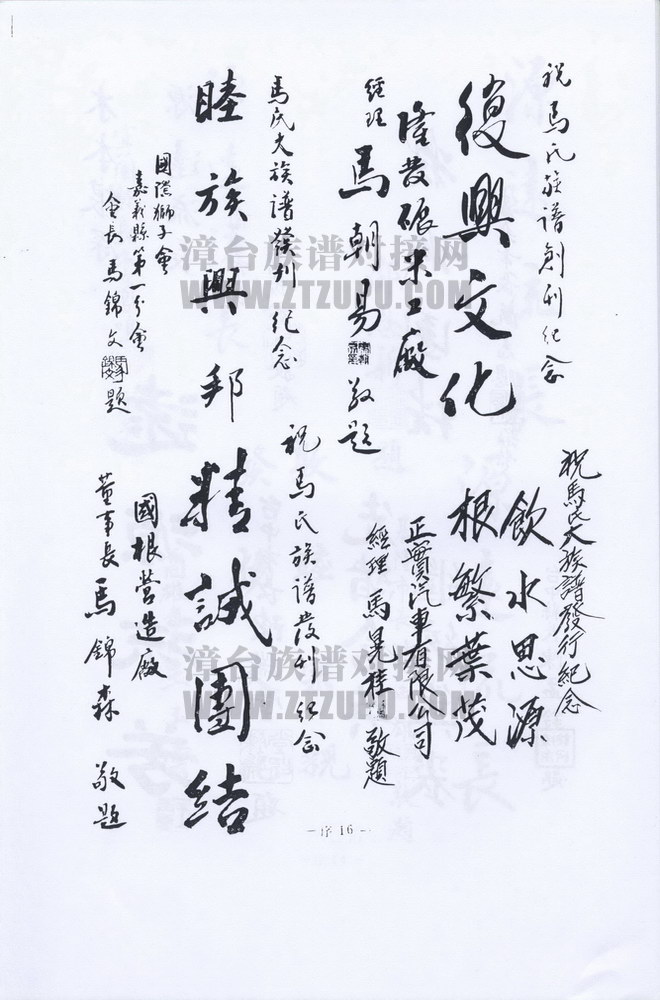 祝馬氏族譜創刊紀念
復興文化
隆發碾米工廠
經理 馬朝易 敬題
馬氏大族譜發刊紀念
睦族興邦
國際獅子會
嘉義縣第一分會
會長 馬錦文 題
祝馬氏大族譜發行紀念
飲水思源
根繁葉茂
正寶汽車有限公司
經理 馬晃桂 敬題
祝馬氏族譜發刊紀念
精誠團結
國根營造廠
董事長 馬錦森 敬題
-序16-
漳台族谱对接网
WWW.ZTZUPU.COM
漳台族谱对接网
WWW.ZTZUPU.COM